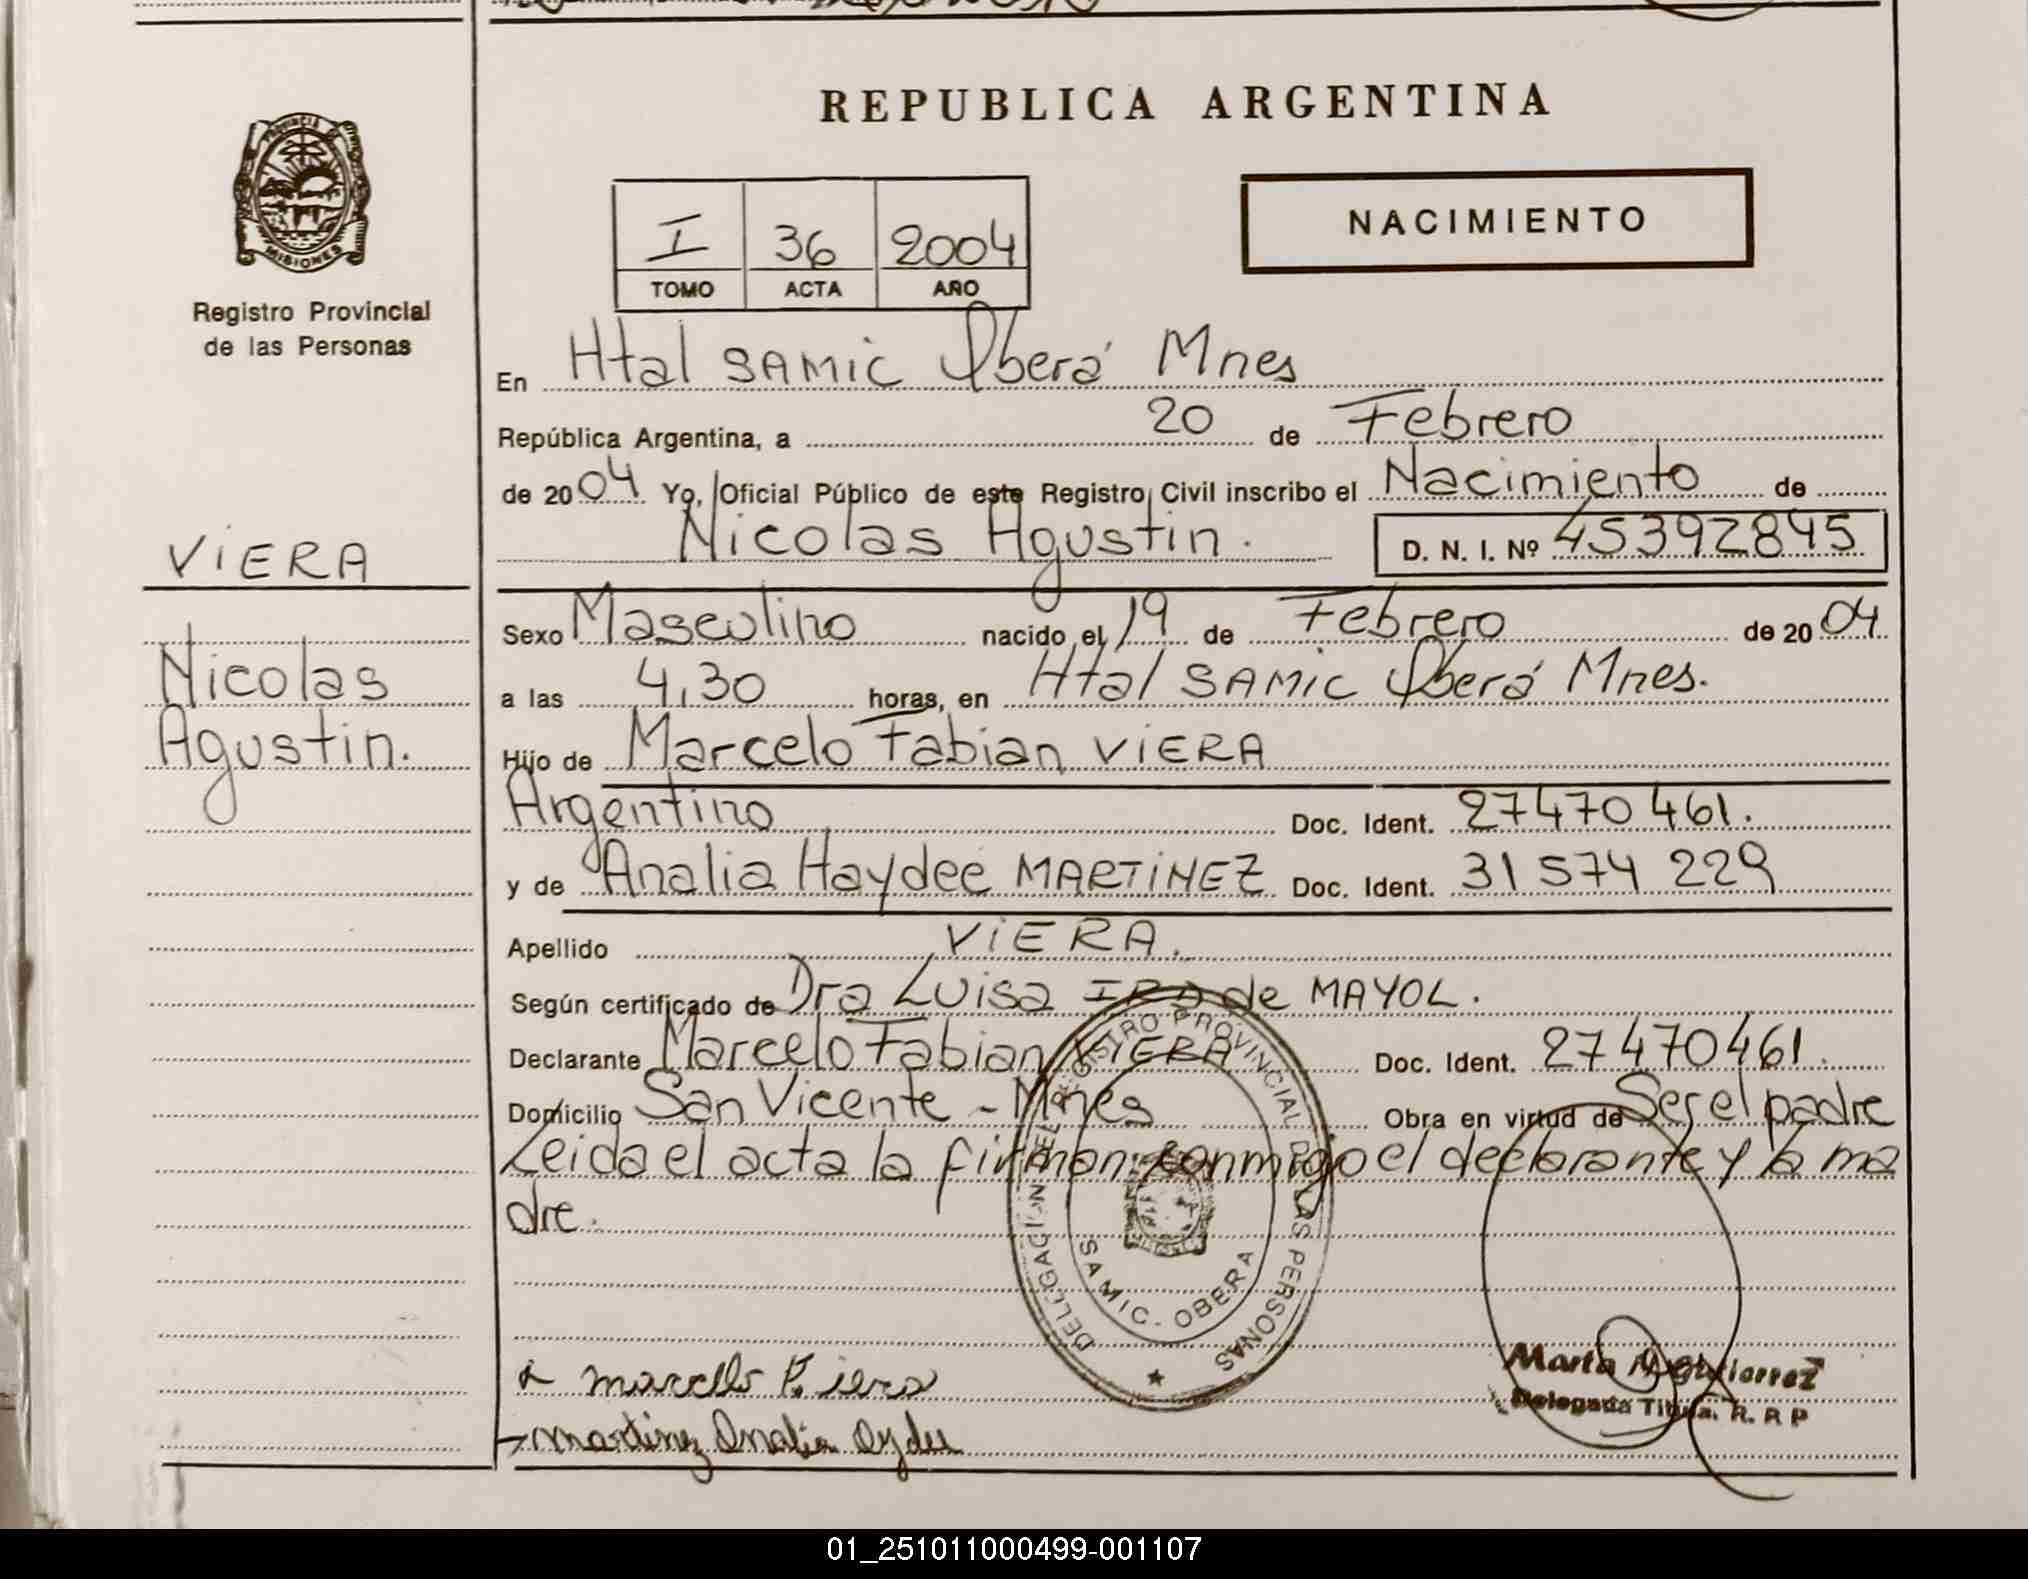 REPUBLICA ARGENTINA
PROVINCIA DE
MISIONES
Registro Provincial
de las Personas
I 36 2004
TOMO ACTA AÑO
NACIMIENTO
En Htal SAMIC Oberá Mnes
República Argentina, a 20 de Febrero
de 2004 Yo, Oficial Público de este Registro Civil inscribo el Nacimiento de
Nicolas Agustin. D. N. I. Nº 45392845
VIERA
Nicolas
Agustin.
Sexo Masculino nacido el 19 de Febrero de 2004
a las 4,30 horas, en Htal SAMIC Oberá Mnes.
Hijo de Marcelo Fabian VIERA
Argentino Doc. Ident. 27470461.
y de Analia Haydee MARTINEZ Doc. Ident. 31574229
Apellido VIERA.
Según certificado de Dra Luisa de MAYOL.
Declarante Marcelo Fabian VIERA Doc. Ident. 27470461.
Domicilio San Vicente - Mnes Obra en virtud de Ser el padre
Leida el acta la firman conmigo el declarante y la ma
dre.
DELEGACION DEL REGISTRO PROVINCIAL DE LAS PERSONAS
SAMIC - OBERA
marcelo F. iera
martinez Analia Aydee
Marta Gutierrez
Delegada Titula. R. R P
01_251011000499-001107